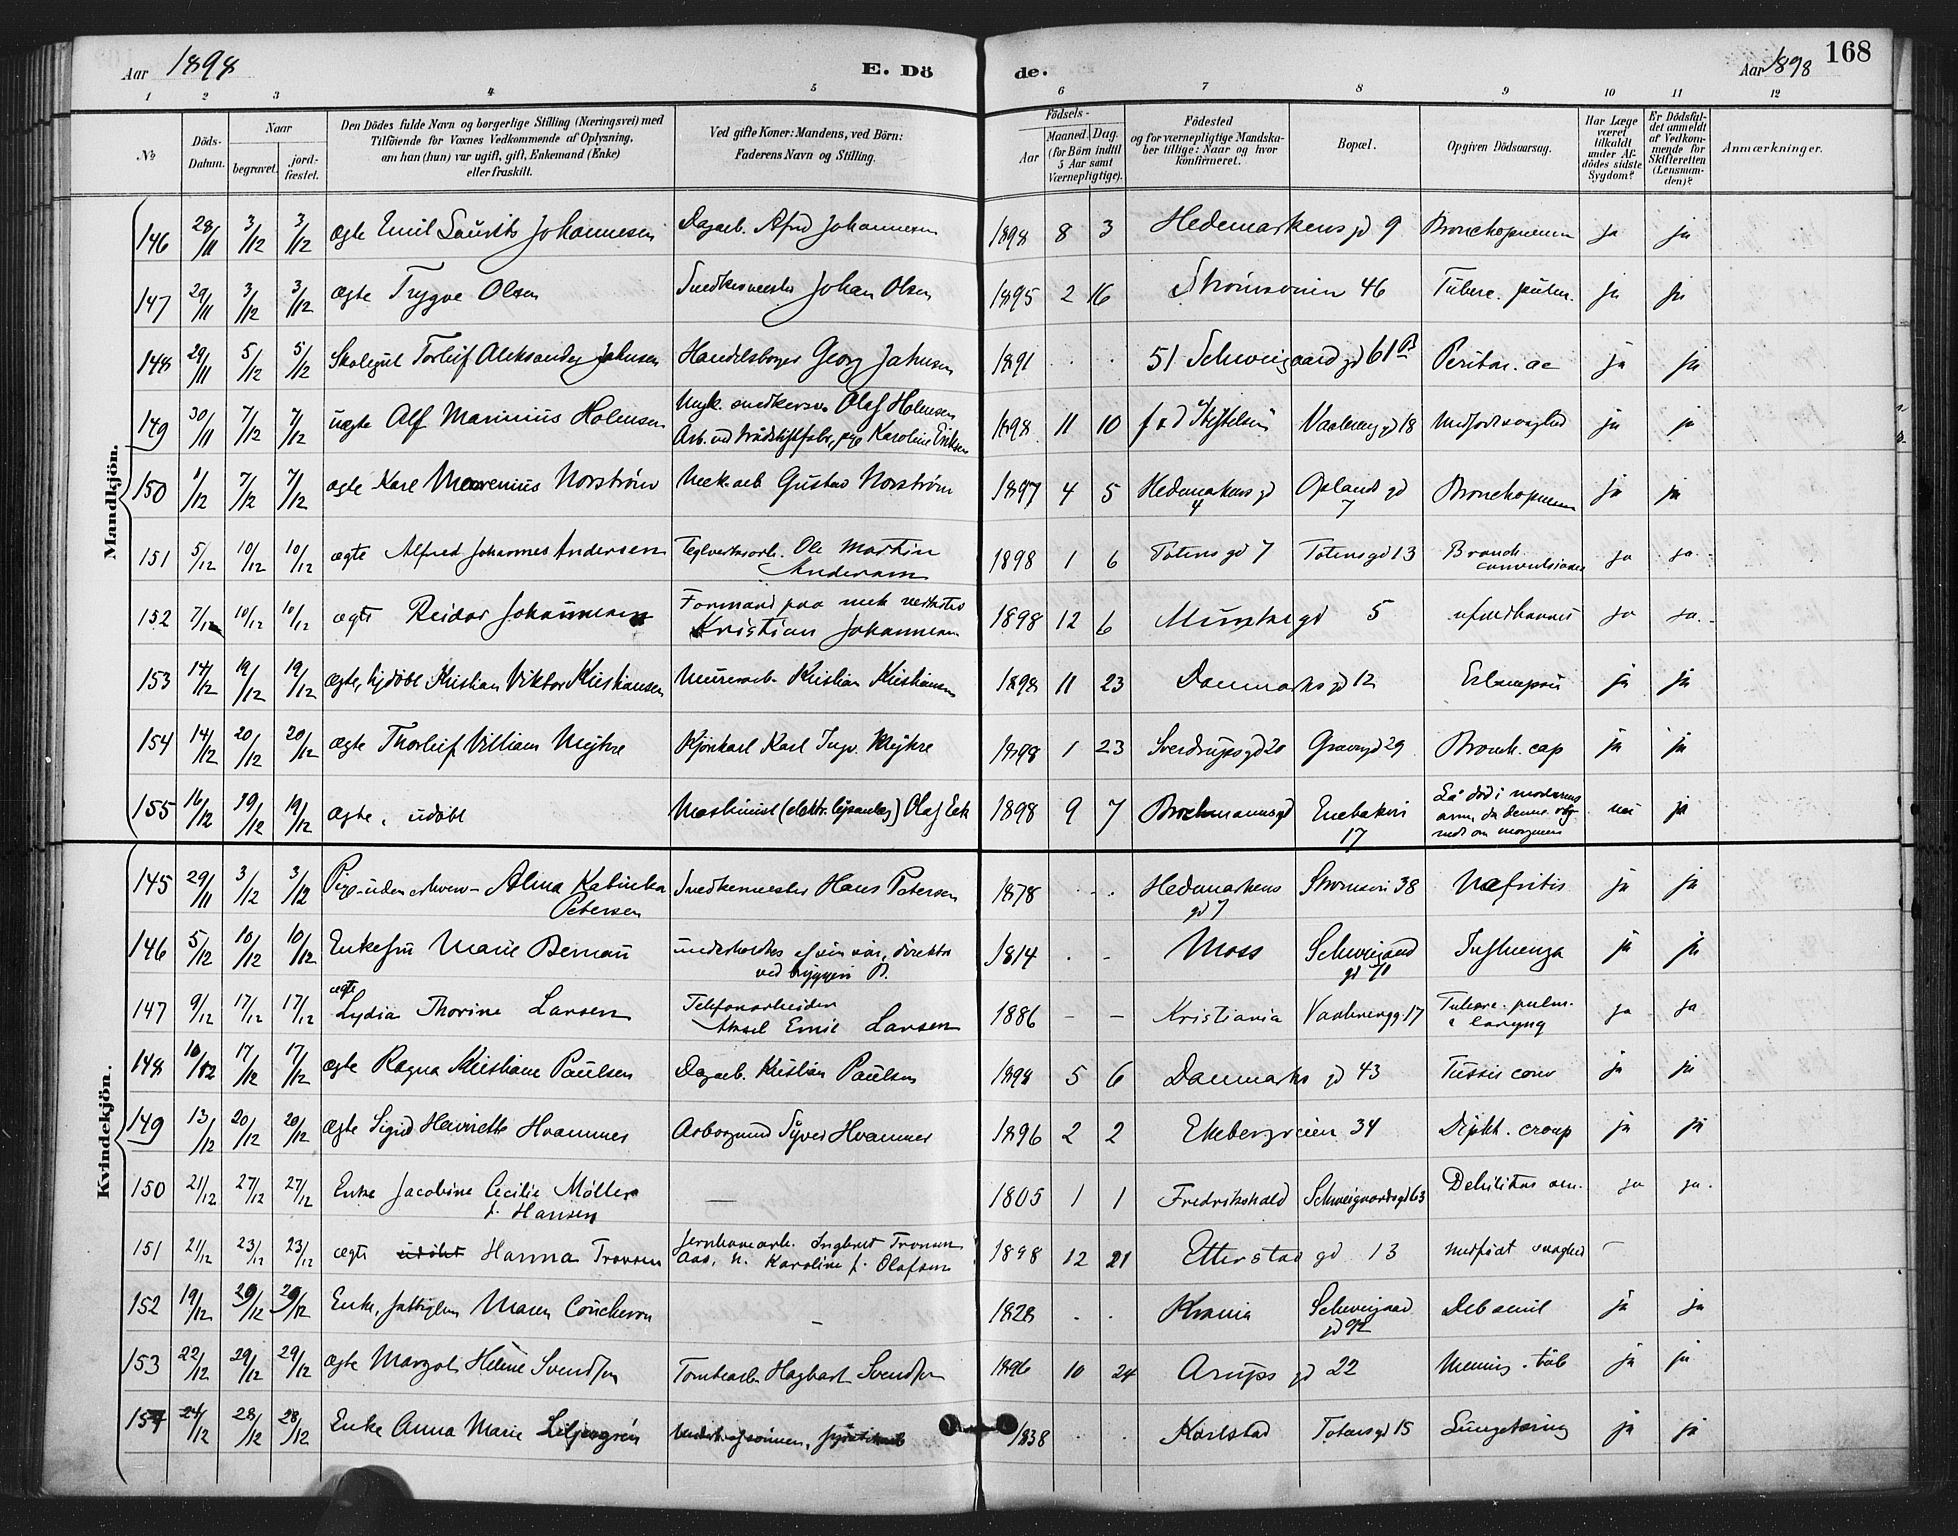 Aar 1898 E. Dö de. Aar 1898 168
1 2 3 4 5 6 7 8 9 10 11 12
No Döds-Datum. Naar begravet. jord-fæstet. Den Dödes fulde Navn og borgerlige Stilling (Næringsvei) med Tilföiende for Voxnes Vedkommende af Oplysning, om han (hun) var ugift, gift, Enkemand (Enke) eller fraskilt. Ved gifte Koner: Mandens, ved Börn: Faderens Navn og Stilling. Födsels- Aar Maaned. Dag. (for Börn indtil 5 Aar samt Værnepligtige). Födested og for værnepligtige Mandskaber tillige: Naar og hvor konfirmeret. Bopæl. Opgiven Dödsaarsag. Har Læge været tilkaldt under Afdödes sidste Sygdom? Er Dödsfaldet anmeldt af Vedkommende for Skifteretten (Lensmanden)? Anmærkninger.
Mandkjön.
146 28/11 3/12 3/12 ægte Emil Laurits Johannesen Dagarb. Johannesen 1898 8 3 Hedemarkens gd 9 ja ja
147 29/11 3/12 3/12 ægte Trygve Olsen Snedkermester Johan Olsen 1895 2 16 Strömsveien 46 Tuberc. pulm. ja ja
148 29/11 5/12 5/12 Skolegut Torleif Aleksander Jahnsen Handelsborger Georg Jahnsen 1891 . . 51 Schweigaard gd 61 B Periton. ac ja ja
149 30/11 7/12 7/12 uægte Alf Marinius Holmsen Ungk. snedkersv. Olaf Holmsen
Arb. ved trådstiftfabr., pige Karoline Eriksen 1898 11 10 f x d Stiftelsen Vaalereng gd 18 Medfødt svaghed ja ja
150 1/12 7/12 7/12 ægte Karl Norström Mek. arb Gustav Norström 1897 4 5 Hedemarkens gd 4 Oplands gd 7 ja ja
151 5/12 10/12 10/12 ægte Alfred Johannes Andersen Teglverksarb. Ole Martin Andersen 1898 1 6 Totens gd 7 Totens gd 13 Bronch. convulsiones ja ja
152 7/12 10/12 10/12 ægte Reidar Johannesen Formand paa mek verksted Kristian Johannesen 1898 12 6 gd 5 ja ja
153 14/12 19/12 19/12 ægte, hjdöbt Kristian Viktor Kristiansen Murerarb. Kristian Kristiansen 1898 11 23 Danmarks gd 12 Eclampsi ja ja
154 14/12 20/12 20/12 ægte Thorleif Villiam Myhre Kjörekarl Karl Ingv. Myhre 1898 1 23 Sverdrups gd 20 gd 29 Bronch. cap ja ja
155 16/12 19/12 19/12 ægte, udöbt Maskinist (elektr. lysanlæg) Olaf Eek 1898 9 7 Brochmannsgd Enebakvei 17 Lå död i moderens arm, da denne vågnede om morgenen nei ja
Kvindekjön.
145 29/11 3/12 3/12 Pige uden erhverv Alma Katinka Petersen Snedkermester Hans Petersen 1878 . . Hedemarkens gd 7 Strömsvei 38 Nefritis ja ja
146 5/12 10/12 10/12 Enkefru Marie Bernau underholdes af sin sön, direktör ved bryggeri B. 1814 . . Moss Schweigaard gd 71 Influenza ja ja
147 9/12 17/12 17/12 ægte Lydia Thorine Larsen Telefonarbeider Aksel Emil Larsen 1886 – – Kristiania Vaalerengg. 17 Tuberc. pulm. & laryng ja ja
148 10/12 17/12 17/12 ægte Ragna Kristiane Paulsen Dagarb. Kristian Paulsen 1898 5 6 Danmarks gd 43 Tussis conv ja ja
149 13/12 20/12 20/12 ægte Sigrid Henriette Hvammer Arbsmand Syver Hvammer 1896 2 2 Ekebergveien 34 Difth. croup ja ja
150 21/12 27/12 27/12 Enke Jacobine Cecilie Møller f. Hansen — 1805 1 1 Fredrikshald Schweigaardsgd 63 Debilitas sen. ja ja
151 21/12 23/12 23/12 ægte udöbt Hanna Tronsen Jernbanearb. Ingbret Tronsen Aas, u. Karoline f. Olafsen 1898 12 21 Etterstad gd 13 medfødt svaghed –
152 19/12 29/12 29/12 Enke, fattiglem Maren Coucheron – 1828 . . Krania Schweigaard gd 92 Deb senil ja ja
153 22/12 29/12 29/12 ægte Margot Helene Svendsen Tomtearb Hagbart Svendsen 1896 10 24 Arups gd 22 Mening. tub ja ja
154 24/12 28/12 28/12 Enke Anna Marie Liljengrén Underh. af sönnen, 1838 . . Karlstad Totens gd 15 Lungetæring ja ja